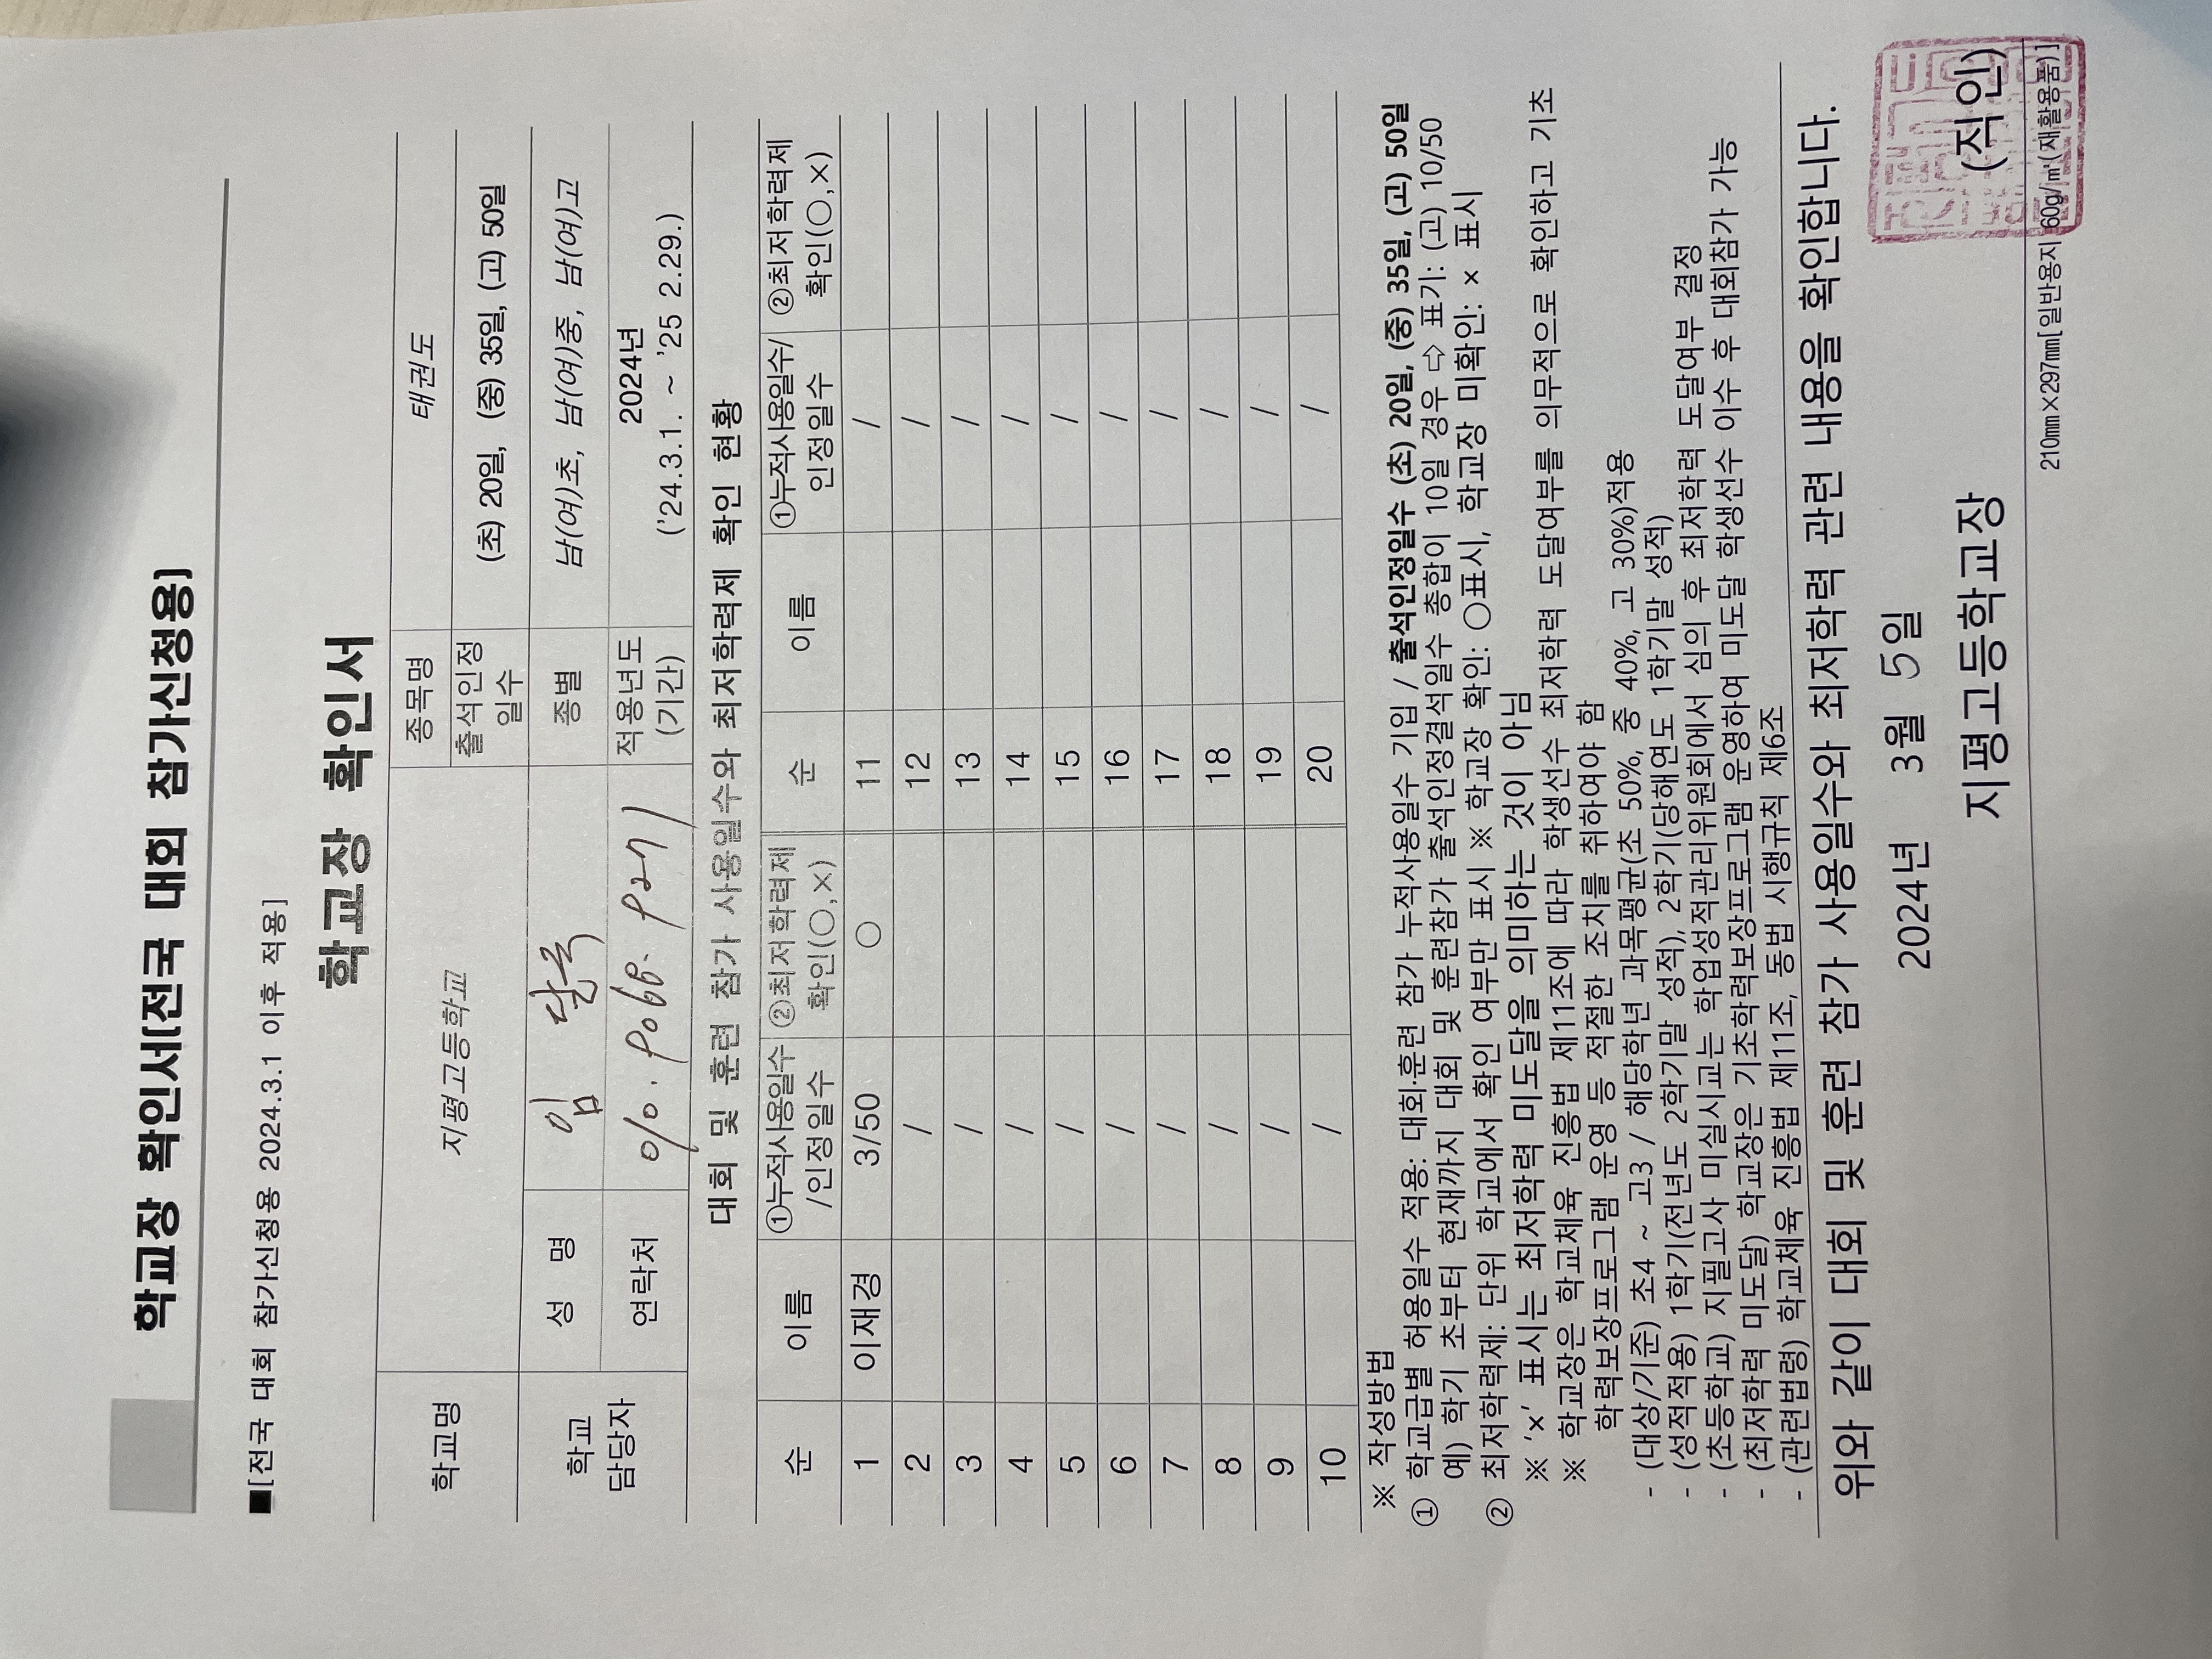 학교장 확인서(전국 대회 참가신청용)
■[전국 대회 참가신청용 2024.3.1 이후 적용]
학교장 확인서
학교명 지평고등학교 종목명 태권도
출석인정 일수 (초) 20일, (중) 35일, (고) 50일
학교 담당자 성 명 임 종별 남(여)초, 남(여)중, 남(여)고
연락처 적용년도 (기간) 2024년
('24.3.1. ~ '25 2.29.)
대회 및 훈련 참가 사용일수와 최저학력제 확인 현황
순 이름 ①누적사용일수 /인정일수 ②최저학력제 확인(○,×) 순 이름 ①누적사용일수/ 인정일수 ②최저학력제 확인(○,×)
1 이재경 3/50 ○ 11 /
2 / 12 /
3 / 13 /
4 / 14 /
5 / 15 /
6 / 16 /
7 / 17 /
8 / 18 /
9 / 19 /
10 / 20 /
※ 작성방법
① 학교급별 허용일수 적용: 대회·훈련 참가 누적사용일수 기입 / 출석인정일수 (초) 20일, (중) 35일, (고) 50일
예) 학기 초부터 현재까지 대회 및 훈련참가 출석인정결석일수 총합이 10일 경우 ⇨ 표기: (고) 10/50
② 최저학력제: 단위 학교에서 확인 여부만 표시 ※ 학교장 확인: ○표시, 학교장 미확인: × 표시
※ '×' 표시는 최저학력 미도달을 의미하는 것이 아님
※ 학교장은 학교체육 진흥법 제11조에 따라 학생선수 최저학력 도달여부를 의무적으로 확인하고 기초
학력보장프로그램 운영 등 적절한 조치를 취하여야 함
- (대상/기준) 초4 ~ 고3 / 해당학년 과목평균(초 50%, 중 40%, 고 30%)적용
- (성적적용) 1학기(전년도 2학기말 성적), 2학기(당해연도 1학기말 성적)
- (초등학교) 지필고사 미실시교는 학업성적관리위원회에서 심의 후 최저학력 도달여부 결정
- (최저학력 미도달) 학교장은 기초학력보장프로그램 운영하여 미도달 학생선수 이수 후 대회참가 가능
- (관련법령) 학교체육 진흥법 제11조, 동법 시행규칙 제6조
위와 같이 대회 및 훈련 참가 사용일수와 최저학력 관련 내용을 확인합니다.
2024년 3월 5일
지평고등학교장 (직인)
210㎜×297㎜[일반용지 60g/㎡(재활용품)]